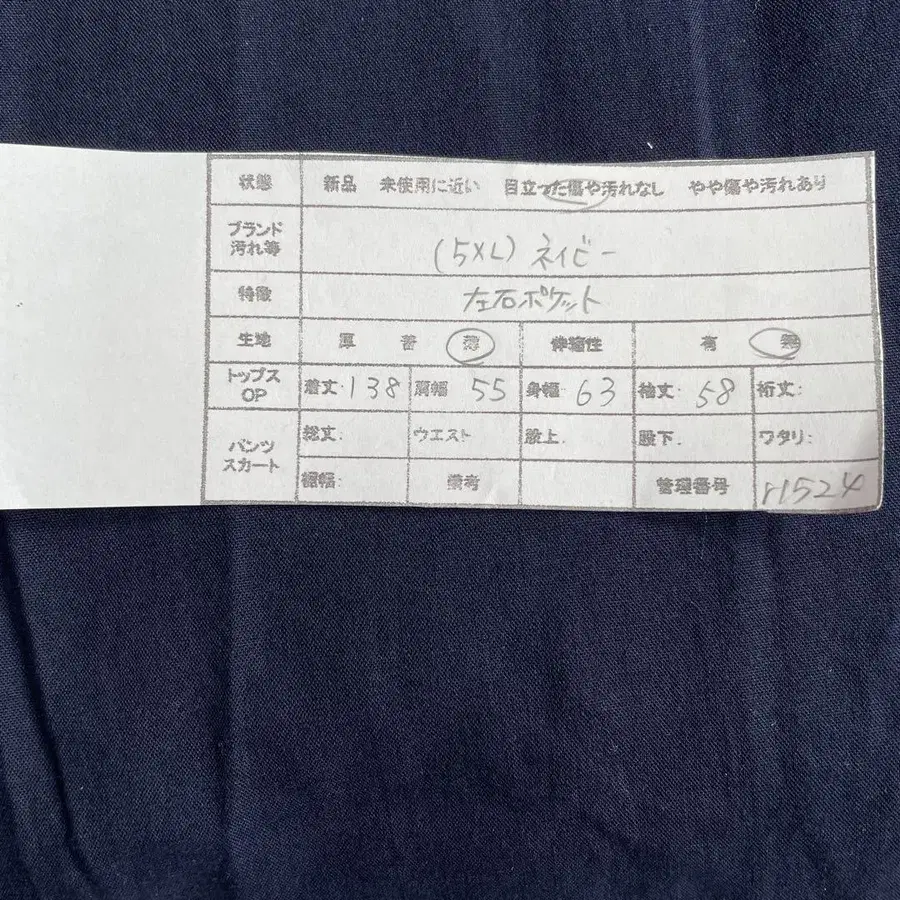 状態 新品 未使用に近い 目立った傷や汚れなし やや傷や汚れあり
ブランド
汚れ等
(5XL) ネイビー
特徴 左右ポケット
生地 厚 普 薄 伸縮性 有 無
トップス
OP
着丈. 138 肩幅 55 身幅. 63 袖丈. 58 裄丈:
パンツ
スカート
総丈: ウエスト 股上. 股下. ワタリ:
裾幅: 備考 管理番号 r1524